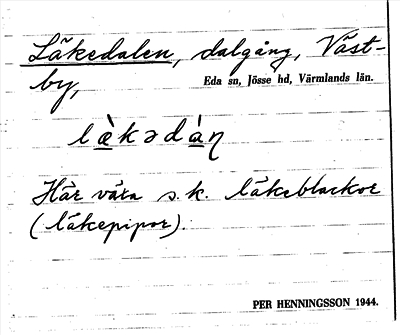 Läkedalen, dalgång, Väst-
by,
Eda sn, Jösse hd, Värmlands län.
l æ̀ k ə d à ņ
Här växa s.k. läkeblackor
(läkepipor).
PER HENNINGSSON 1944.